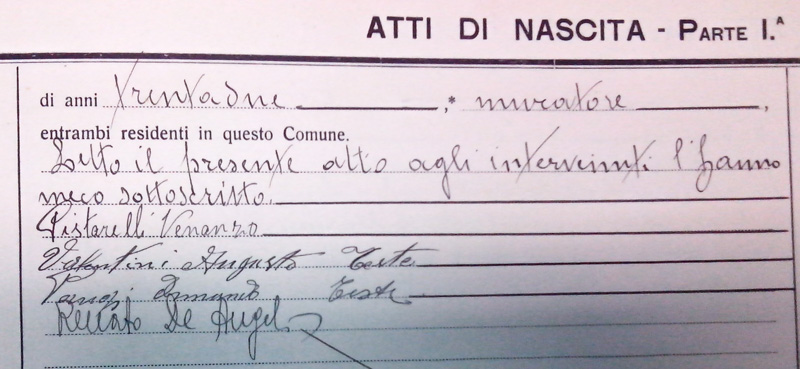 ATTI DI NASCITA - PARTE I.ᴬ
di anni trentadue ,* muratore ,
entrambi residenti in questo Comune.
Letto il presente atto agli intervenuti l'hanno
meco sottoscritto.
Pistarelli Venanzo
Valentini Augusto Teste
Armando Teste
Renato De Angelis